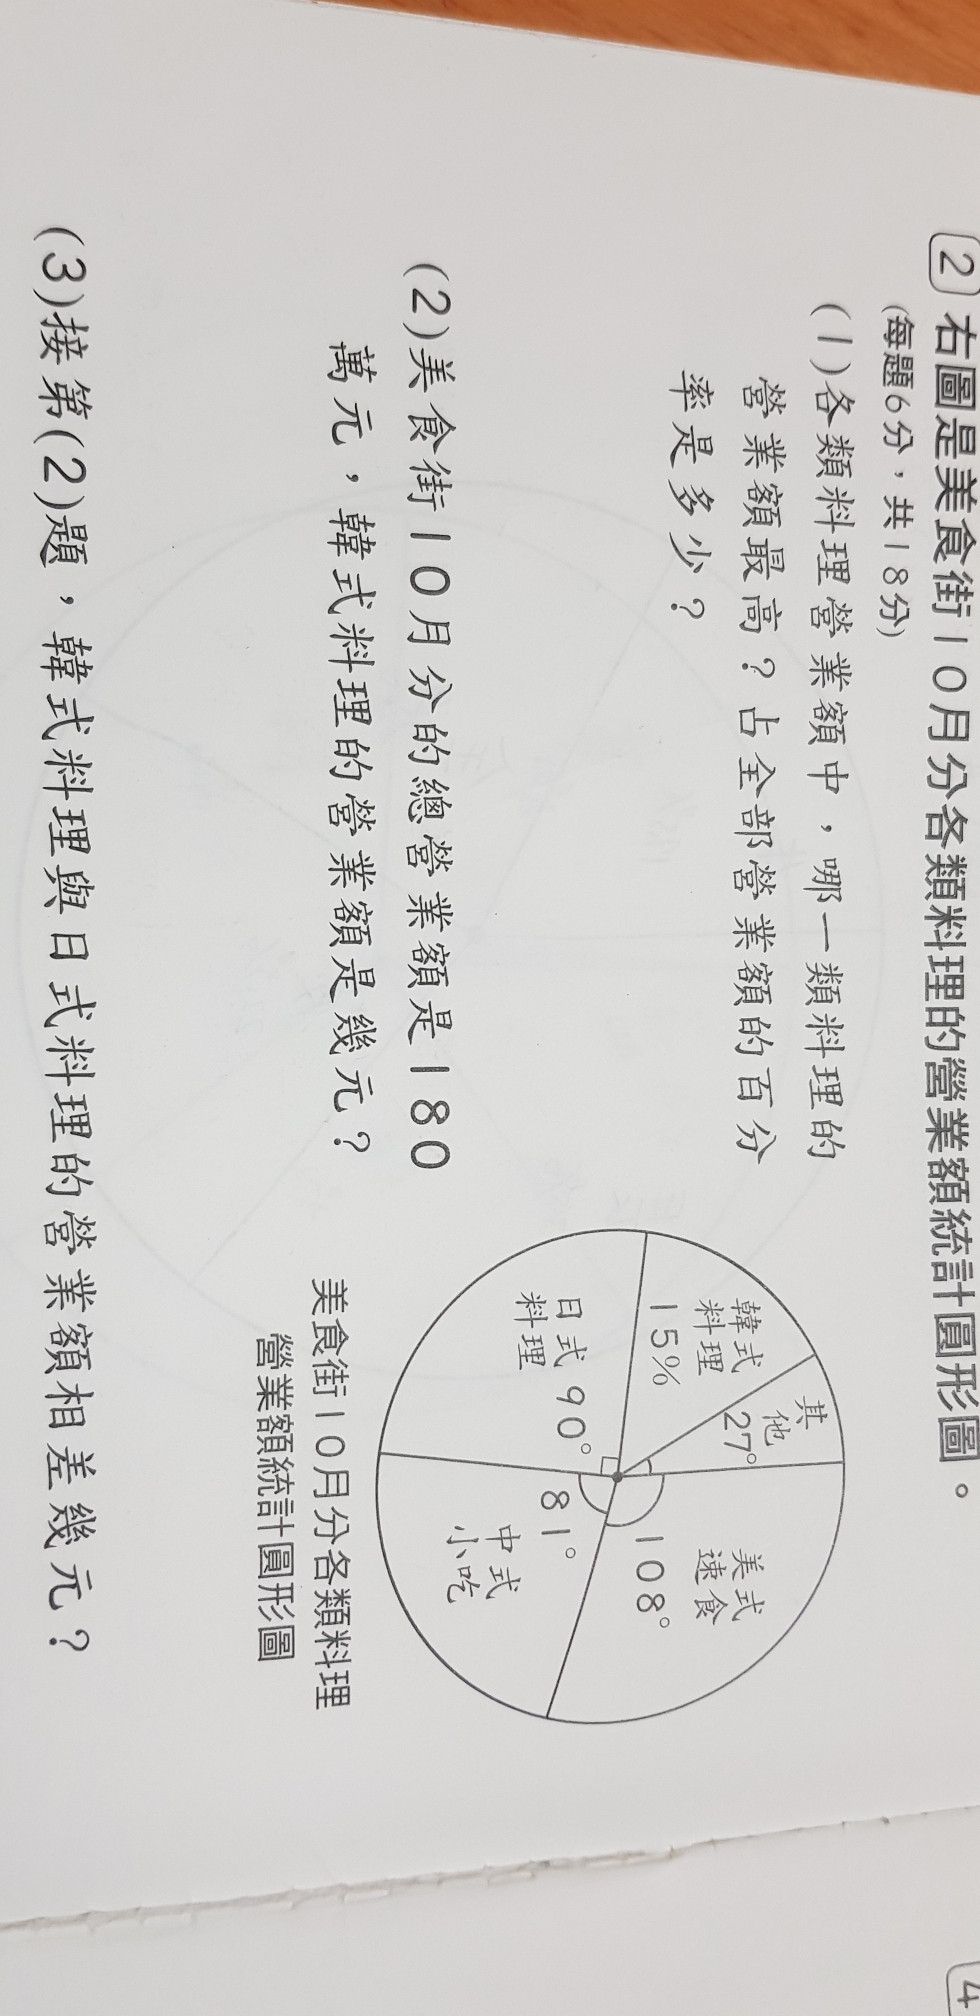 2 右圖是美食街10月分各類料理的營業額統計圓形圖。
(每題6分,共18分)
(1)各類料理營業額中,哪一類料理的
營業額最高?占全部營業額的百分
率是多少?
其他
27°
韓式
料理
15%
美式
速食
108°
日式
料理
90°
81°
中式
小吃
美食街10月分各類料理
營業額統計圓形圖
(2)美食街10月分的總營業額是180
萬元,韓式料理的營業額是幾元?
(3)接第(2)題,韓式料理與日式料理的營業額相差幾元?
4